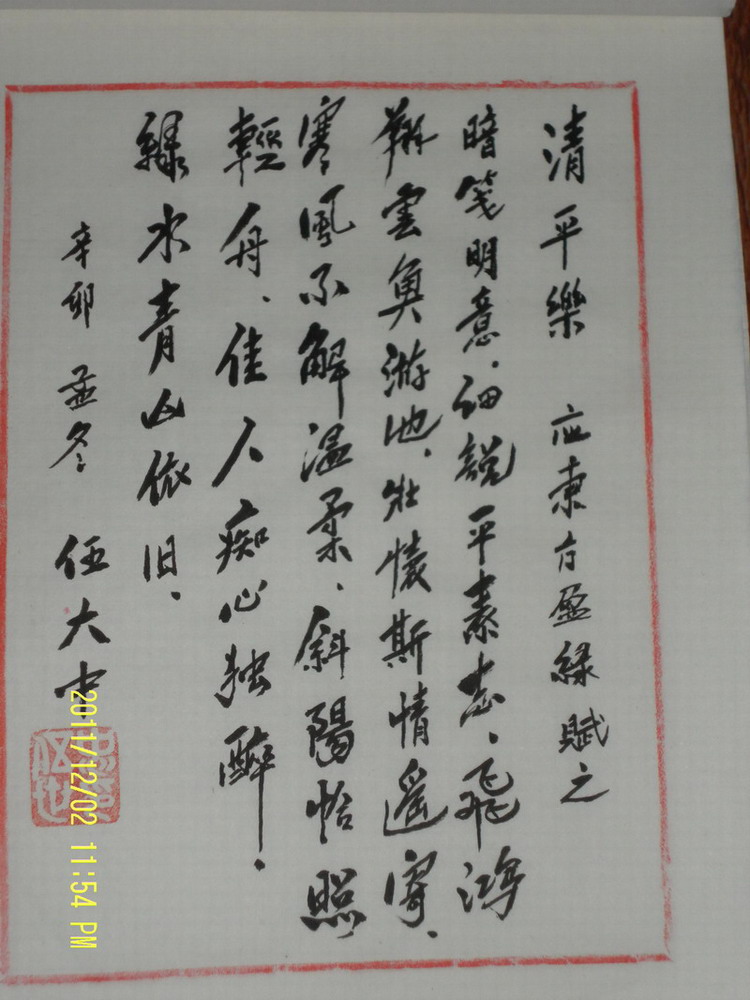 清平樂 应東方盈緑賦之
暗箋明意、细說平素志、飛鴻
翔雲魚游池、壯懷斯情遥寄、
寒風不解温柔、斜陽恰照
輕舟、佳人痴心独醉、
緑水青山依旧、
辛卯 孟冬 伍大中
2011/12/02 11:54 PM